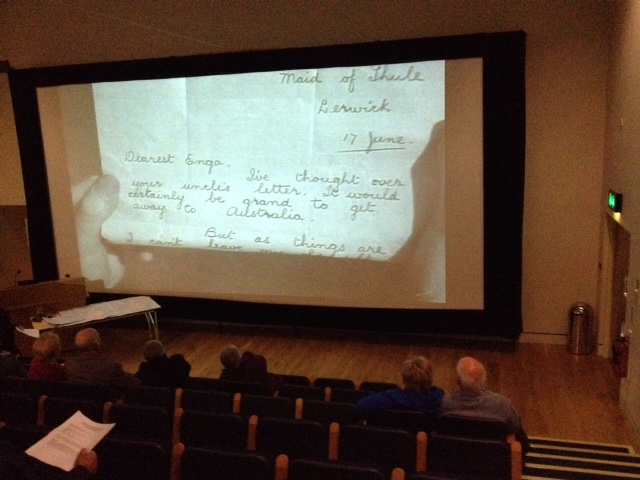 Maid of Thule
Lerwick
17 June.
Dearest Enga.
I've thought over
your uncle's letter. It would
certainly be grand to get
away to Australia.
But as things are
I can't leave